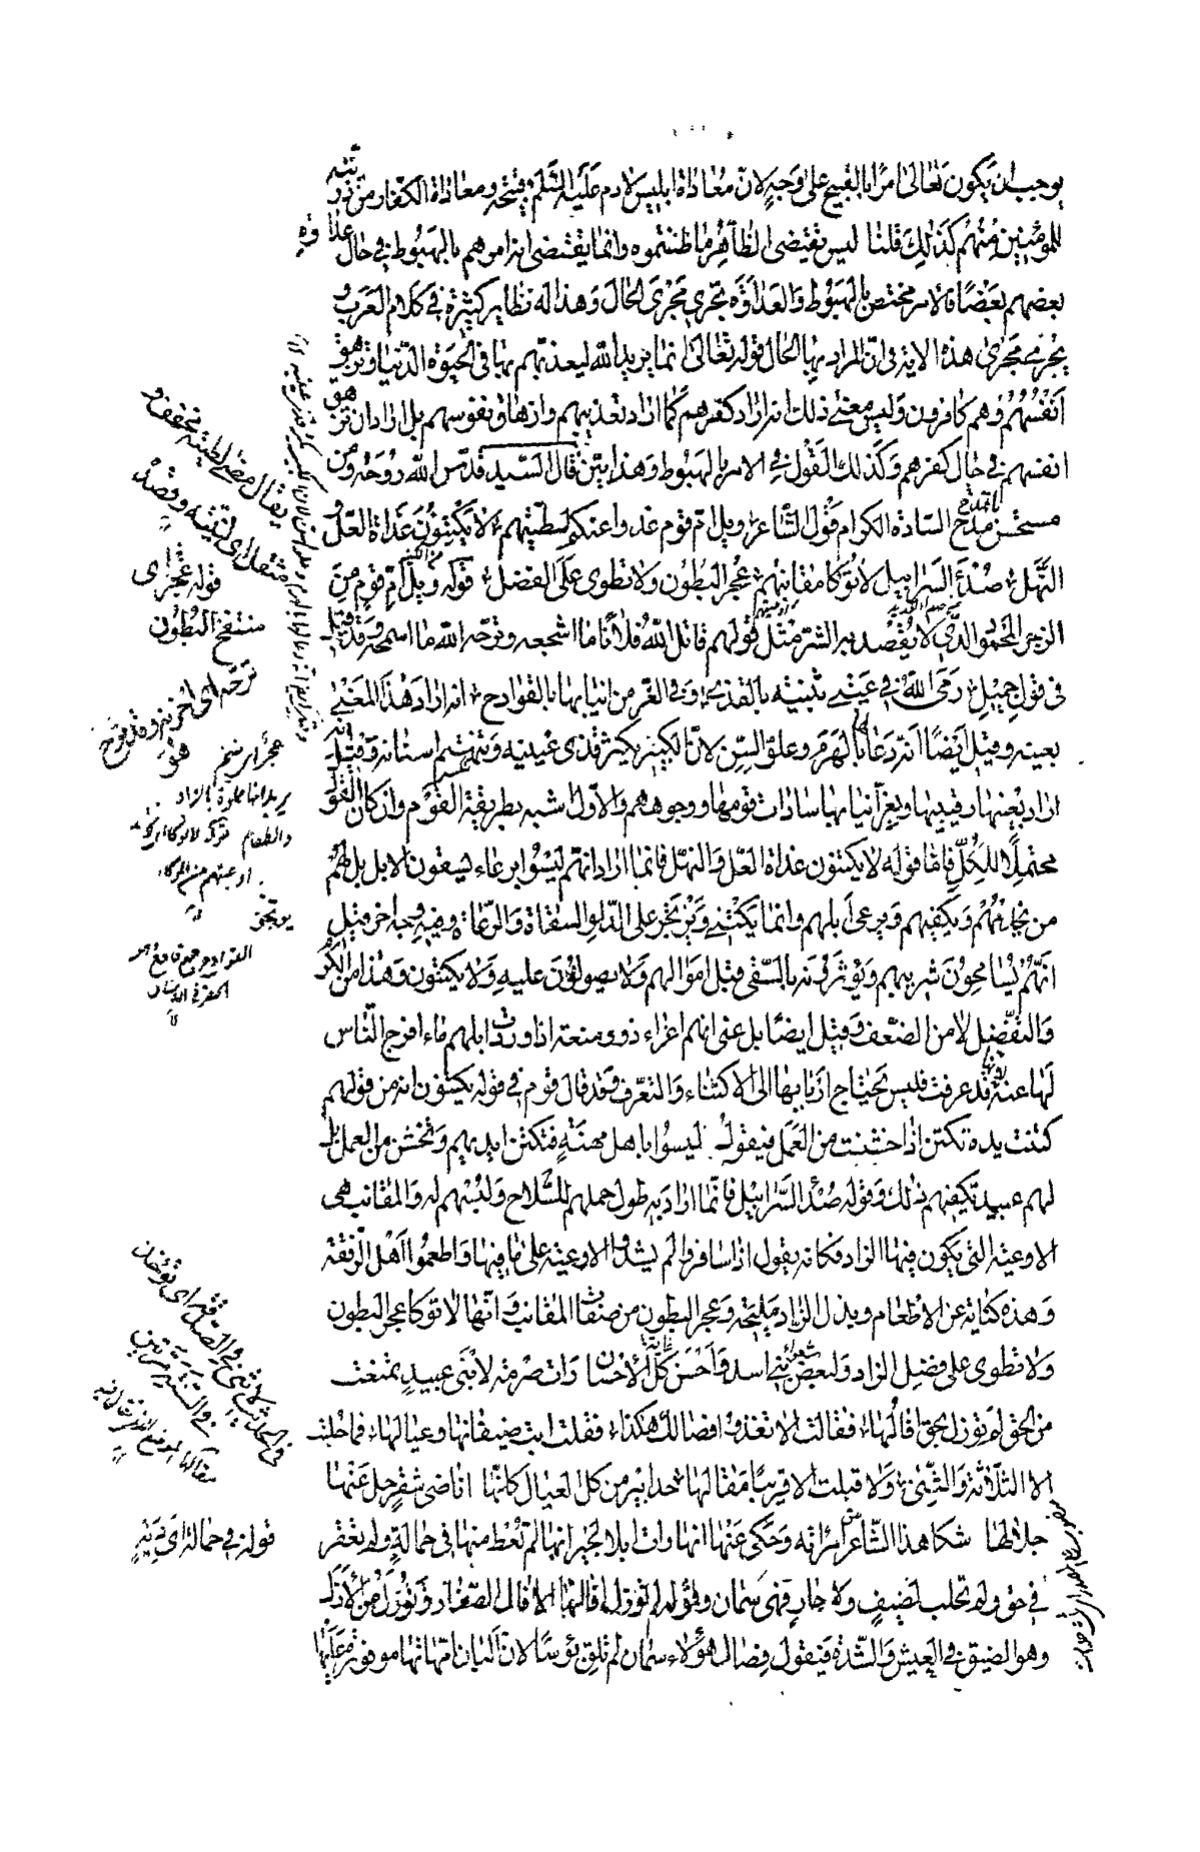 يوجب ان يكون تعالى امرا بالقبيح على وجه لان معاداة ابليس لادم عليه السلم قبيحة ومعاداة الكفار من ذريته
للمؤمنين منهم كذلك قلنا ليس تقتضى الظاهر ما ظننتموه وانما يقتضى انه امرهم بالهبوط في حال عداوة
بعضهم بعضا فالامر مختص بالهبوط والعداوة تجرى مجرى الحال وهذا له نظاير كثيرة في كلام العرب و
يجرى مجرى هذه الاية فى ان المراد بها الحال قوله تعالى انما يريد الله ليعذبهم بها فى الحيوة الدنيا وتزهق
انفسهم وهم كافرون وليس معنى ذلك انه اراد كفرهم كما اراد تعذيبهم وازهاق نفوسهم بل اراد ان تزهق
انفسهم في حال كفرهم وكذلك القول في الامر بالهبوط وهذا بين قال السيد قدس الله روحه ومن
مستحسن مدح السادة الكرام قول الشاعر ويل ام قوم غدوا عنكم لطيتهم لا يكتنون غداة العل و
النهل صدء السرابيل لا توكا مقانبهم عجر البطون ولا تطوى على الفضل قوله ويل ام قوم من
الزجر المحمود الذي لا يقصد به الشر مثل قولهم قاتل الله فلانا ما اشجعه وترحه الله ما اسمحه وقد قيل
فى قول جميل رمى الله في عينى بثينة بالقذى وفى الغر من انيابها بالقوادح انه اراد هذا المعنى
بعينه وقيل ايضا انه دعا لها بالهرم وعلو السن لان الكبير يكثر قذى عينيه وتتهتم اسنانه وقيل انه
اراد بعينها رقيبيها وبغر انيابها سادات قومها ووجوههم والاول اشبه بطريقة القوم وان كان القول
محتملا للكل فاما قوله لا يكتنون غداة العل والنهل فانما اراد انهم ليسوا برعاء يسقون الابل بل لهم
من يخدمهم ويكفيهم ويرعى ابلهم وانما يكتنى ويرتجز على الدلو السقاة والرعاة وفيه وجه اخر قيل
انهم يسامحون شريبهم ويؤثرونه بالسقى قبل اموالهم ولا يصولون عليه ولا يكتنون وهذا من الكرم
والتفضل لا من الضعف وقيل ايضا بل عنى انهم اعزاء ذوو منعة اذا وردت ابلهم ماء افرج الناس
لها عنه لانها قد عرفت فليس يحتاج اربابها الى الاكتناء والتعرف وقد قال قوم في قوله يكتنون انه من قولهم
كتنت يده تكتن اذا خشنت من العمل فيقول ليسوا باهل مهنة فتكتن ايديهم وتخشن من العمل بل
لهم عبيد تكفيهم ذلك وقوله صدء السرابيل فانما اراد به طول حملهم للسلاح ولبسهم له والمقانب هى
الاوعية التى يكون فيها الزاد فكانه يقول اذا سافروا لم يشدوا الاوعية على ما فيها واطعموا اهل الرفقة
وهذه كناية عن الاطعام وبذل الزاد مليحة وعجر البطون من صفات المقانب وانها لا توكا عجر البطون
ولا تطوى على فضل الزاد ولبعض شعراء بنى اسد واحسن كل الاحسان رات صرمة لابنى عبيد تمنعت
من الحق لم توزل بحق افالها فقالت الا تغذو افصالك هكذا فقلت ابت ضيفانها وعيالها فما حلبت
الا الثلاثة والثنى ولا قيلت الا قريبا مقالها حدابير من كل العيال كانها اناضى شقر حل عنها
جلالها شكا هذا الشاعر امراته وحكى عنها انها رات ابلا لجيرانها لم تعط منها في حمالة ولم تعقر
في حق ولم تحلب لضيف ولا جار فهى سمان وقوله لم توزل افالها الافال الصغار وتوزل من الازل
وهو الضيق في العيش والشدة فيقول فصال هؤلاء سمان لم تلق بؤسا لان البان امهاتها موفورة عليها
يقال مضى لطيته مخففا و
مثقلا اى لنيته وقصده
قوله عجر اى
منتفخ البطون
ترحه اى احزنه
يريد انها مملوة بالزاد
والطعام
القوادح جمع قادح
قوله في حمالة اى دية